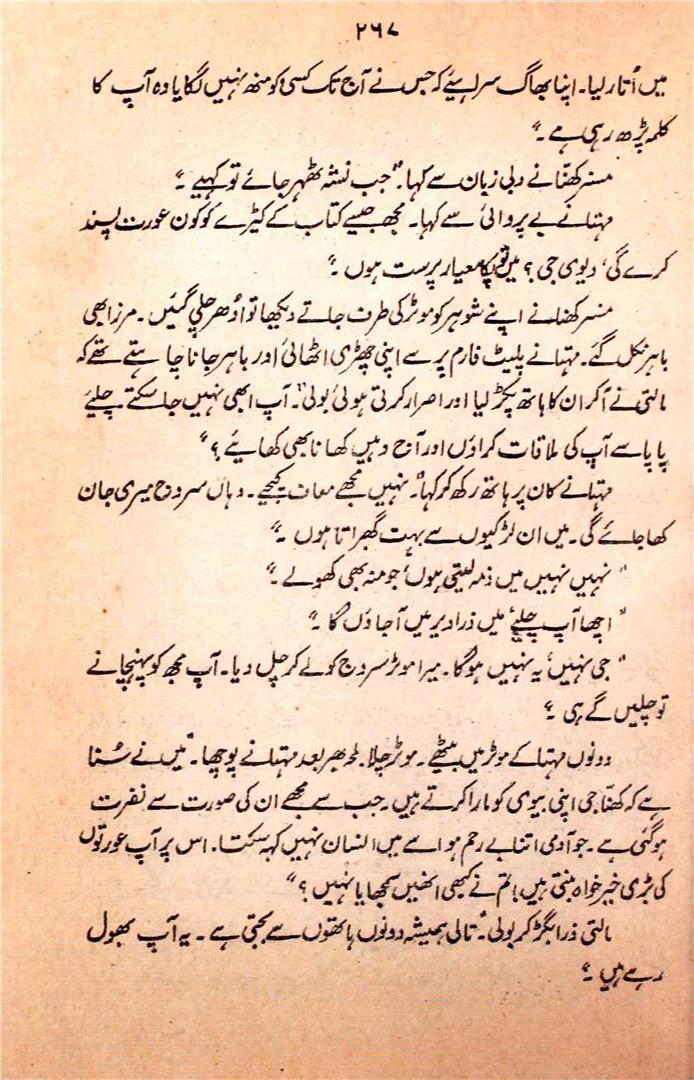 ۲۶۷
میں اُتار لیا۔ اپنا بھاگ سراہیئے کہ جس نے آج تک کسی کو منھ نہیں لگایا وہ آپ کا
کلمہ پڑھ رہی ہے۔"
مسز کھنّا نے دبی زبان سے کہا۔ "جب نشہ ٹھہر جائے تو کہیے۔"
مہتا نے بے پروائی سے کہا۔ مجھ جیسے کتاب کے کیڑے کو کون عورت پسند
کرے گی، دیوی جی؟ میں تو پکا معیار پرست ہوں۔"
مسز کھنا نے اپنے شوہر کو موٹر کی طرف جاتے دیکھا تو اُدھر چلی گئیں۔ مرزا بھی
باہر نکل گئے۔ مہتا نے پلیٹ فارم پر سے اپنی چھڑی اٹھائی اور باہر جانا چاہتے تھے کہ
مالتی نے آکر ان کا ہاتھ پکڑ لیا اور اصرار کرتی ہوئی بولی "۔ آپ ابھی نہیں جا سکتے۔ چلئے
پاپا سے آپ کی ملاقات کراؤں اور آج وہیں کھانا بھی کھایئے؟"
مہتا نے کان پر ہاتھ رکھ کر کہا۔ "نہیں مجھے معاف کیجیے۔ وہاں سروج میری جان
کھا جائے گی۔ میں ان لڑکیوں سے بہت گھبراتا ہوں۔"
"نہیں نہیں میں ذمہ لیتی ہوں، جو منہ بھی کھولے۔"
"اچھا آپ چلیے، میں ذرا دیر میں آجاؤں گا۔"
"جی نہیں، یہ نہیں ہوگا۔ میرا موٹر سروج کو لے کر چل دیا۔ آپ مجھ کو پہنچانے
تو چلیں گے ہی۔"
دونوں مہتا کے موٹر میں بیٹھے۔ موٹر چلا۔ لمحہ بھر بعد مہتا نے پوچھا۔ "میں نے سُنا
ہے کہ کھنّا جی اپنی بیوی کو مارا کرتے ہیں۔ جب سے مجھے ان کی صورت سے نفرت
ہو گئی ہے۔ جو آدمی اتنا بے رحم ہو اسے میں انسان نہیں کہہ سکتا۔ اس پر آپ عورتوں
کی بڑی خیر خواہ بنتی ہیں! تم نے کبھی انھیں سمجھایا نہیں؟"
مالتی ذرا بگڑ کر بولی۔ "تالی ہمیشہ دونوں ہاتھوں سے بجتی ہے۔ یہ آپ بھول
رہے ہیں۔"